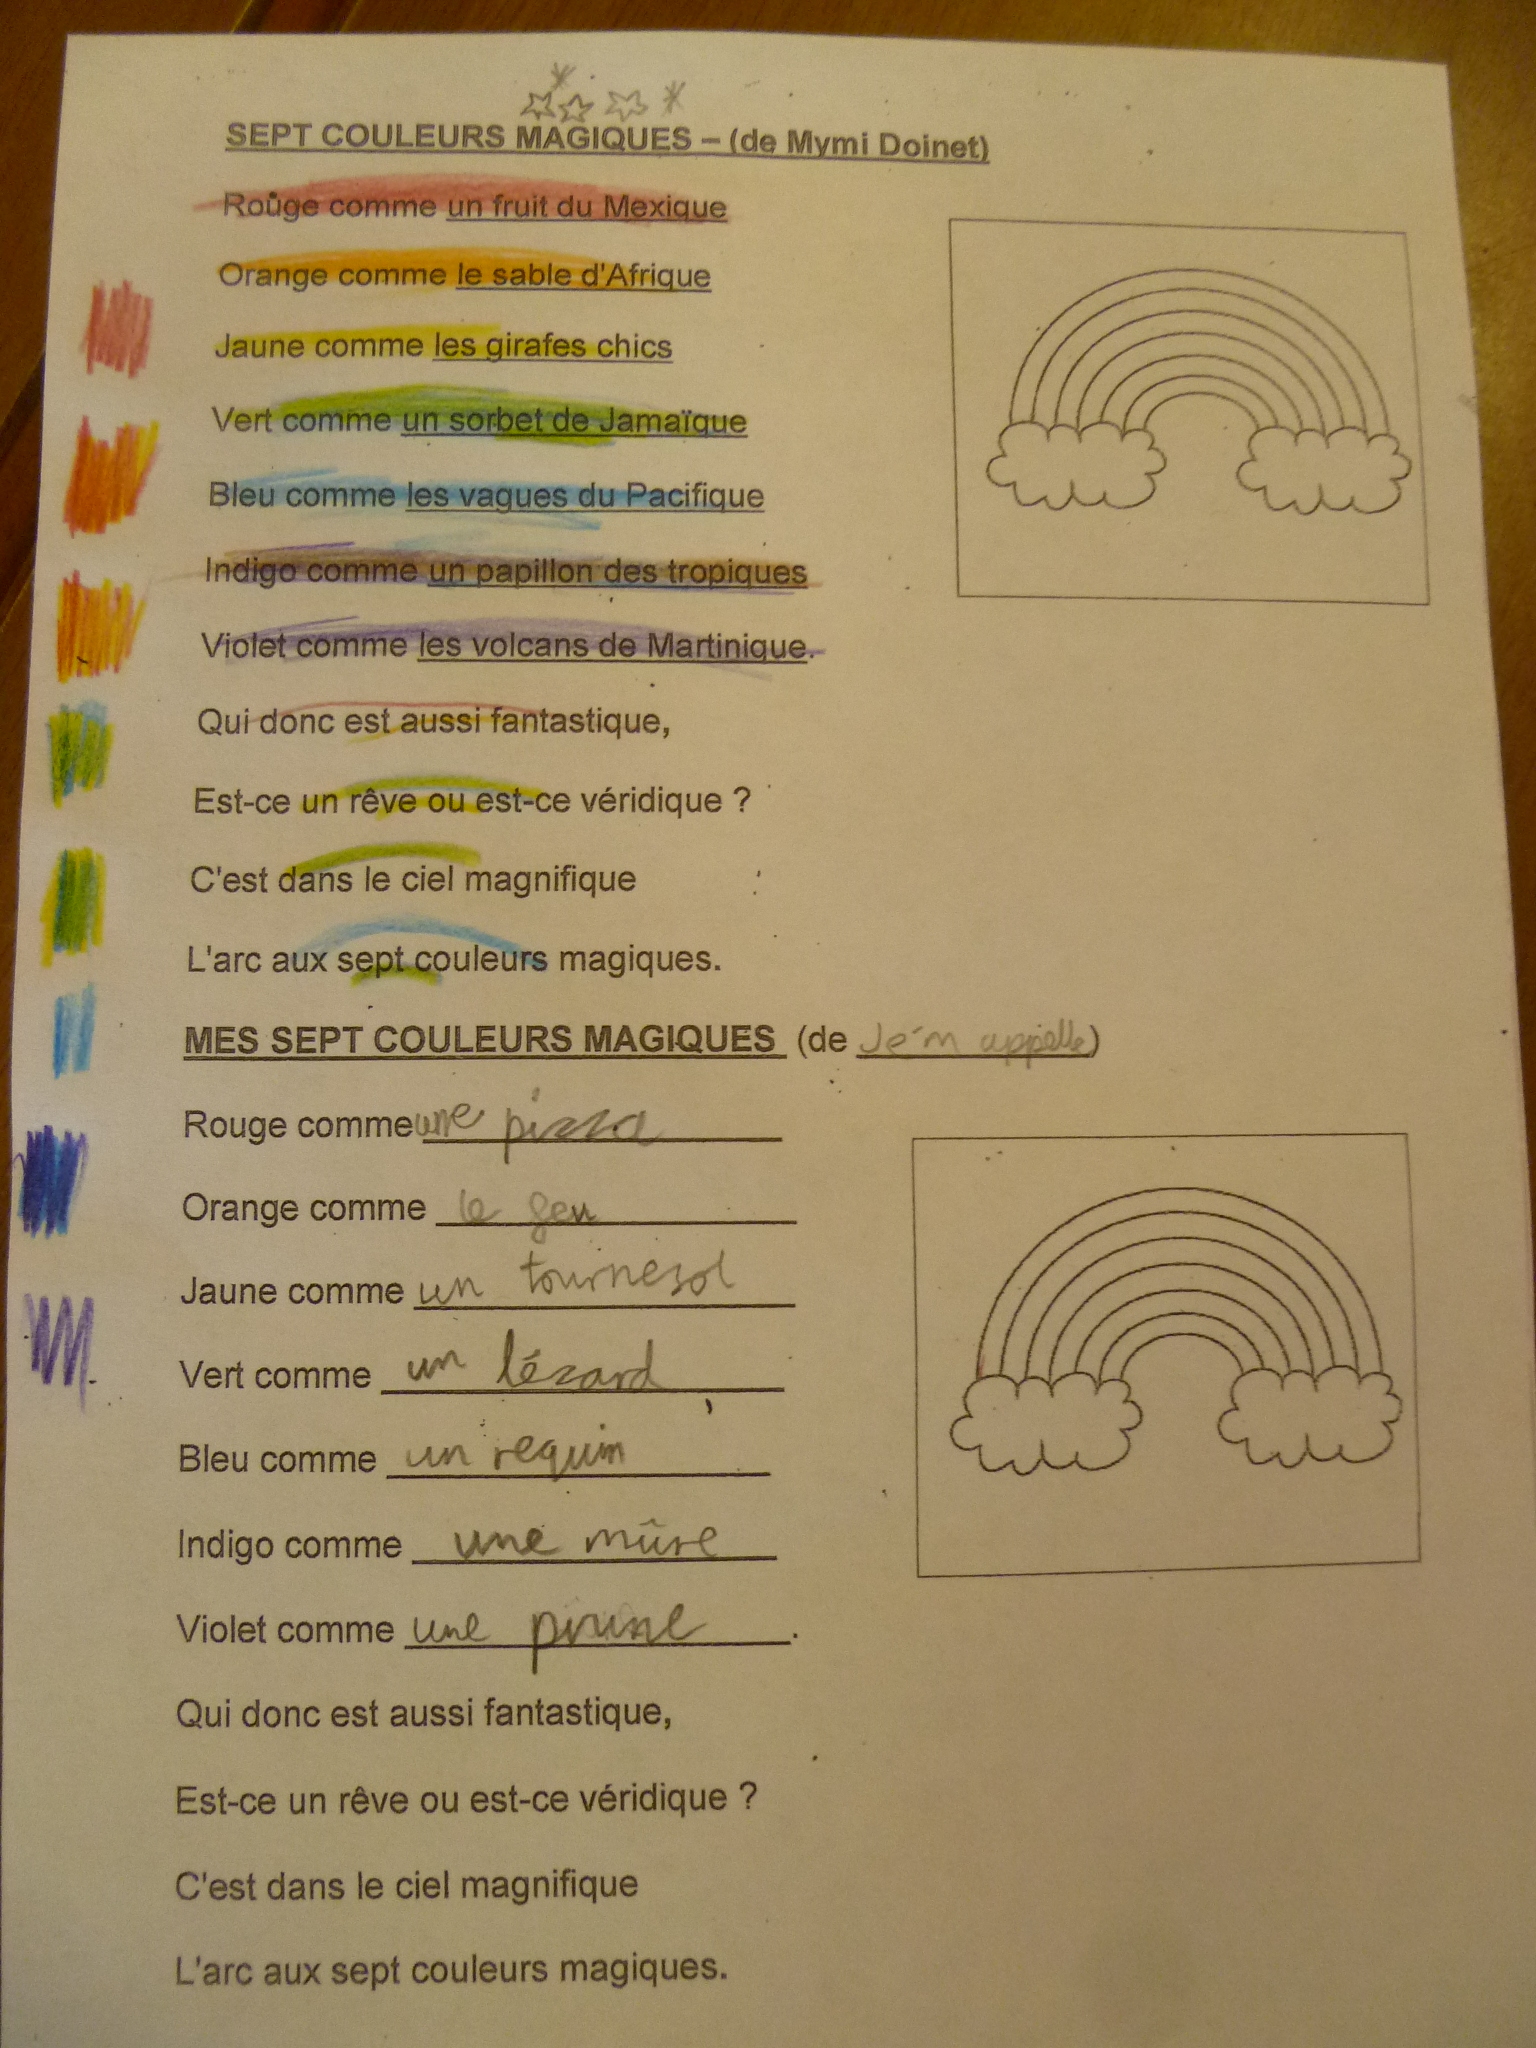 SEPT COULEURS MAGIQUES – (de Mymi Doinet)
Rouge comme un fruit du Mexique
Orange comme le sable d'Afrique
Jaune comme les girafes chics
Vert comme un sorbet de Jamaïque
Bleu comme les vagues du Pacifique
Indigo comme un papillon des tropiques
Violet comme les volcans de Martinique.
Qui donc est aussi fantastique,
Est-ce un rêve ou est-ce véridique ?
C'est dans le ciel magnifique
L'arc aux sept couleurs magiques.
MES SEPT COULEURS MAGIQUES (de Je'm appelle)
Rouge comme une pizza
Orange comme le feu
Jaune comme un tournesol
Vert comme un lézard
Bleu comme un requin
Indigo comme une mûre
Violet comme une prune.
Qui donc est aussi fantastique,
Est-ce un rêve ou est-ce véridique ?
C'est dans le ciel magnifique
L'arc aux sept couleurs magiques.